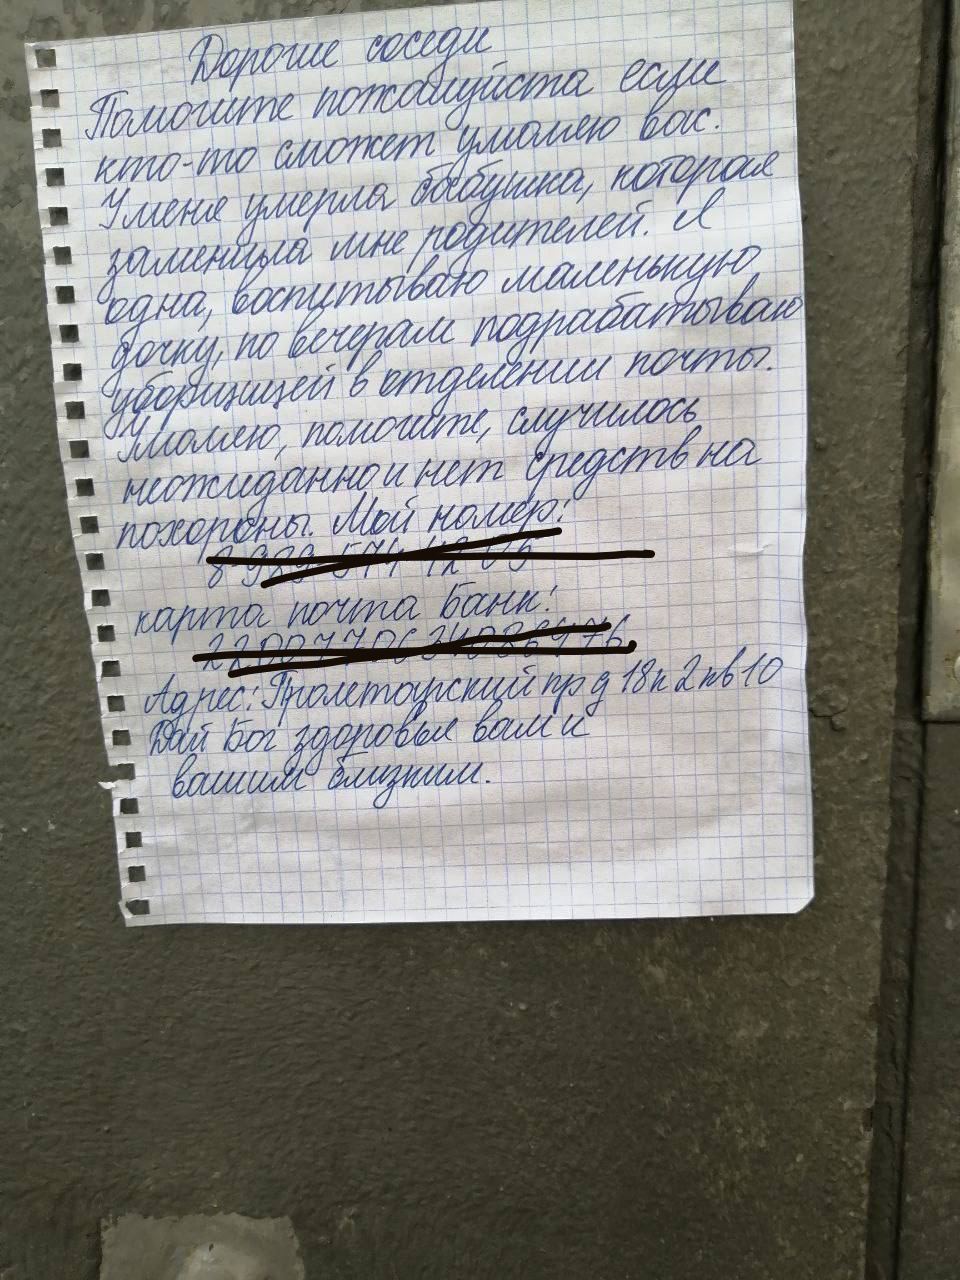 Дорогие соседи
Помогите пожалуйста если
кто-то сможет умоляю вас.
У меня умерла бабушка, которая
заменила мне родителей. Я
одна, воспитываю маленькую
дочку, по вечерам подрабатываю
уборщицей в отделении почты.
Умоляю, помогите, случилось
неожиданно и нет средств на
похороны. Мой номер:
карта почта Банк:
Адрес: Пролетарский пр д 18 п 2 кв 10
Дай Бог здоровья вам и
вашим близким.